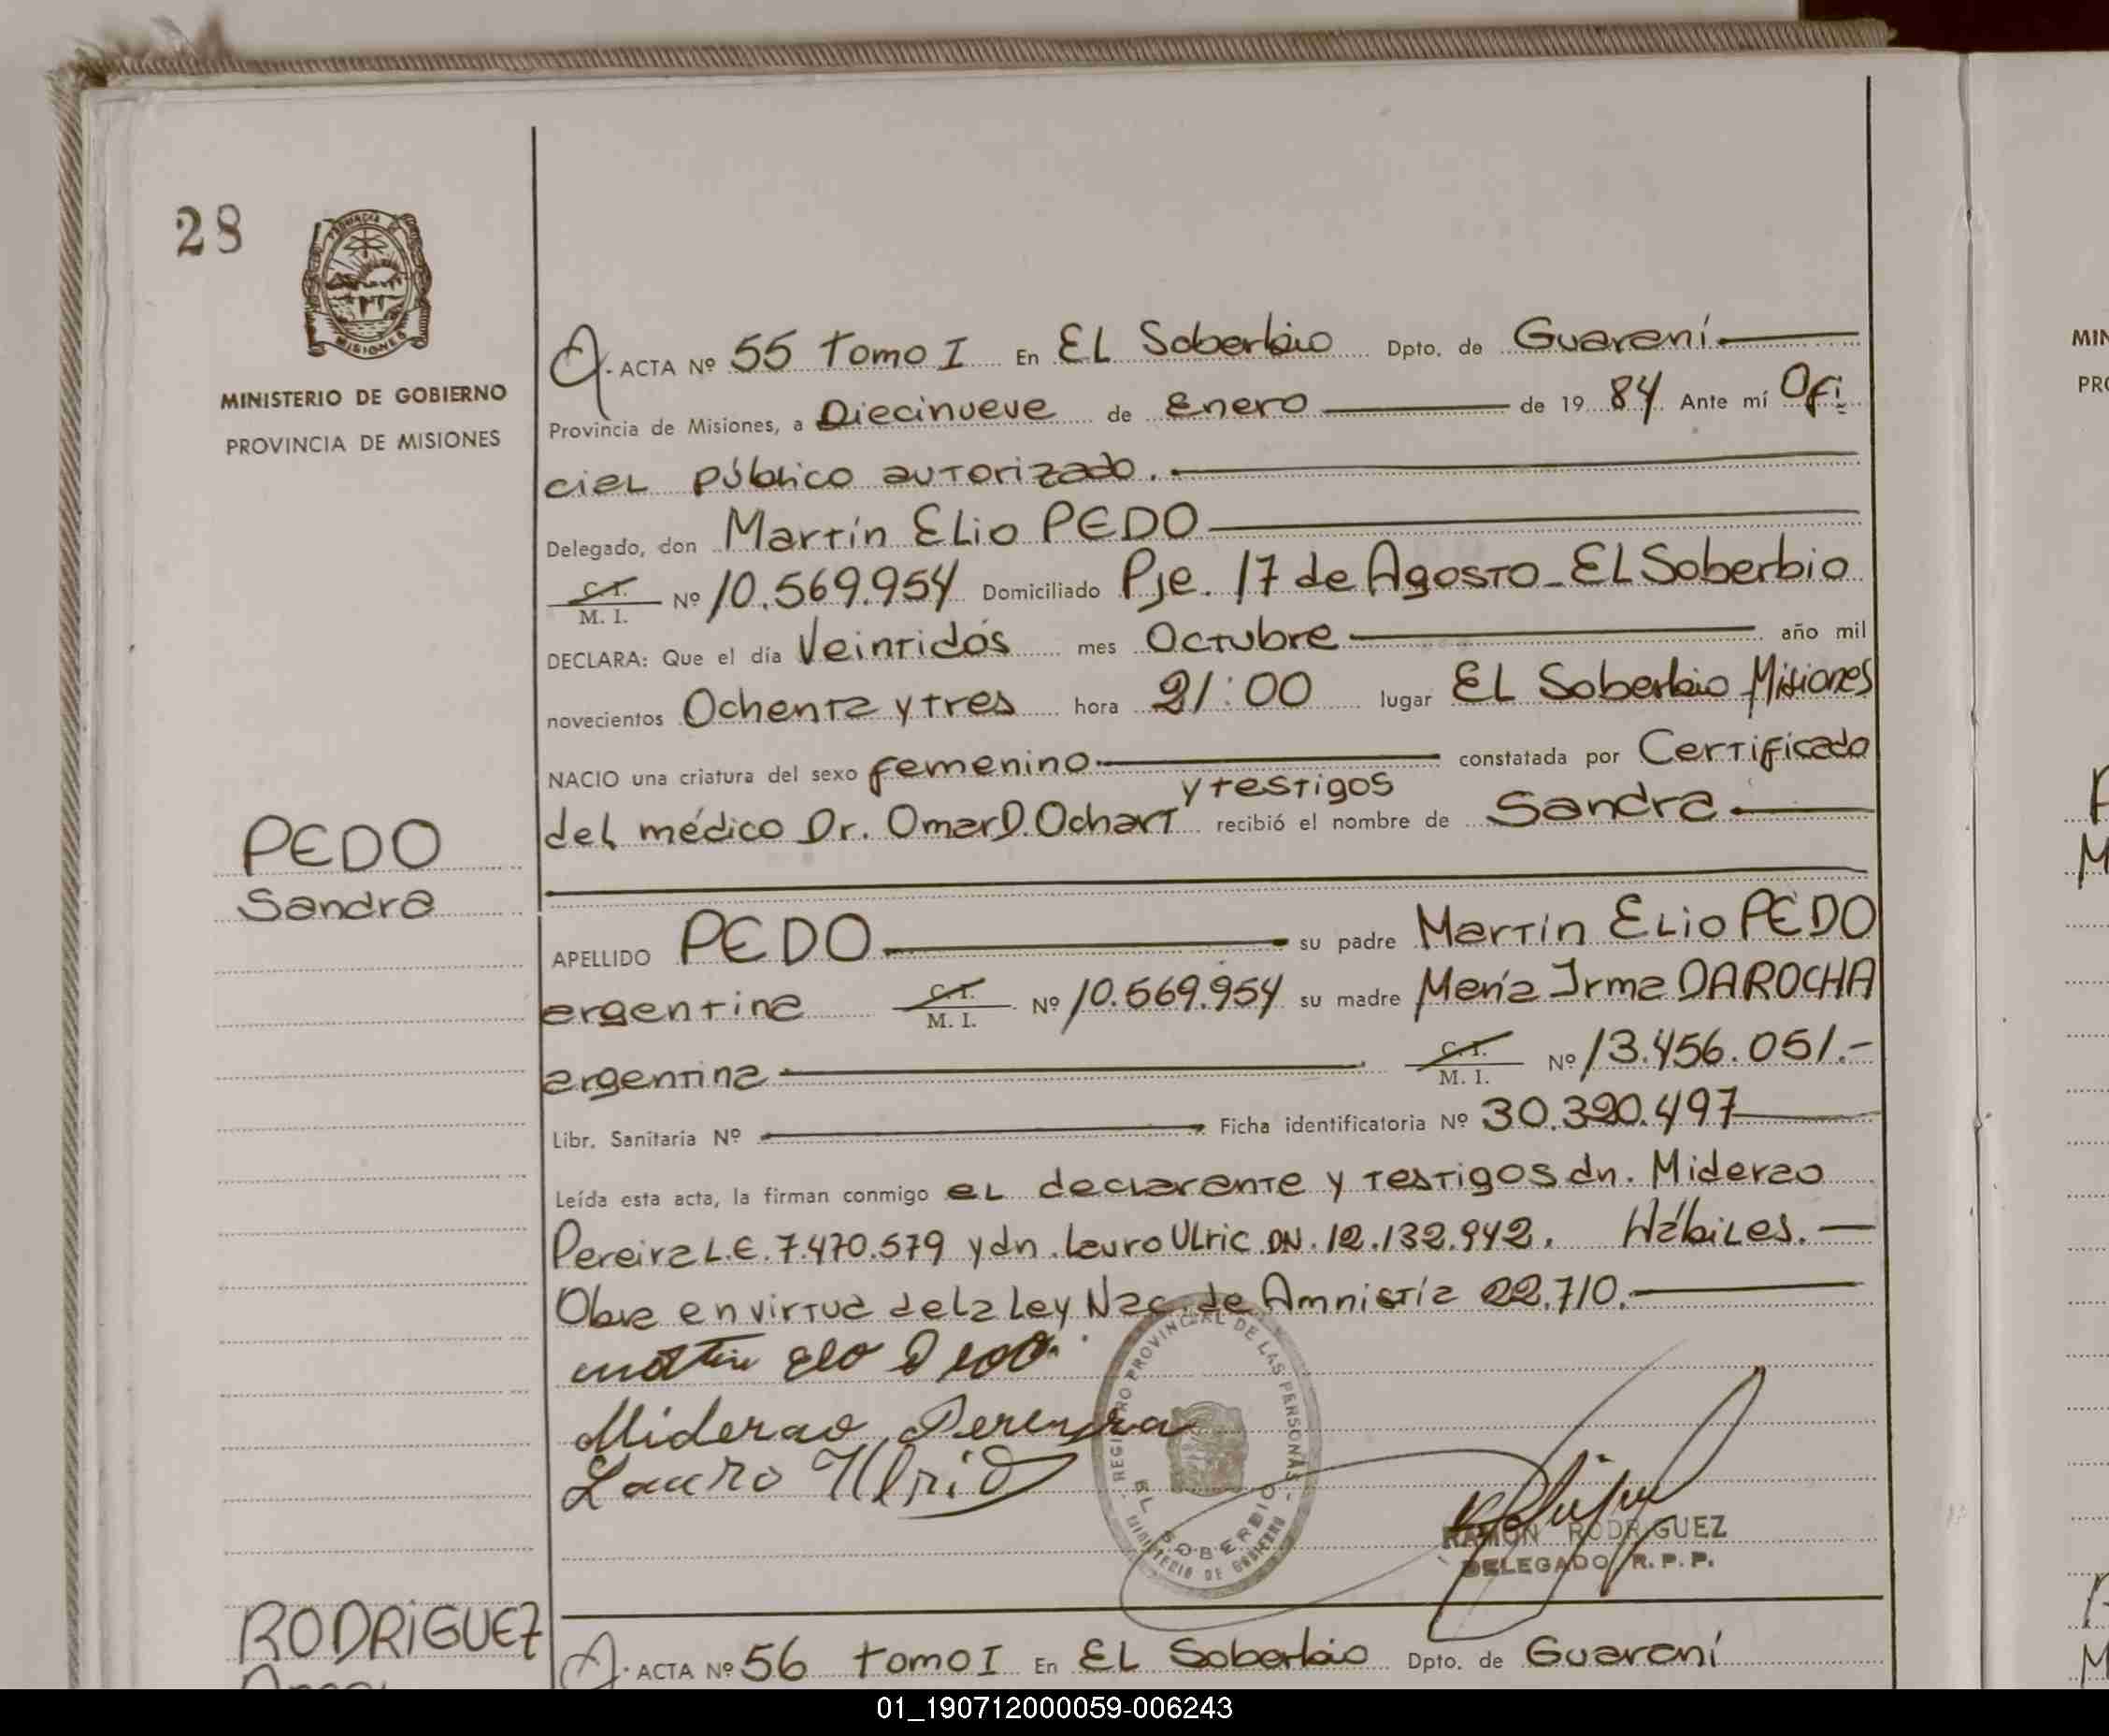 28
MINISTERIO DE GOBIERNO
PROVINCIA DE MISIONES
ACTA Nº 55 Tomo I En EL Soberbio Dpto. de Guaraní
Provincia de Misiones, a Diecinueve de Enero de 1984 Ante mí Ofi
cial público autorizado.
Delegado, don Martín Elio PEDO
C.I. M. I. Nº 10.569.954 Domiciliado Pje. 17 de Agosto - EL Soberbio
DECLARA: Que el día Veintidós mes Octubre año mil
novecientos Ochenta y tres hora 21:00 lugar EL Soberbio Misiones
NACIO una criatura del sexo femenino constatada por Certificado
y testigos
del médico Dr. Omar D. Ochart recibió el nombre de Sandra.
PEDO
Sandra
APELLIDO PEDO su padre Martín Elio PEDO
argentina C.I. M. I. Nº 10.569.954 su madre María Irma DAROCHA
argentina C.I. M. I. Nº 13.456.051.-
Libr. Sanitaria Nº Ficha identificatoria Nº 30.320.497
Leída esta acta, la firman conmigo el declarante y testigos dn. Miderao
Pereira L.E. 7.470.579 y dn. Lauro Ulric DN. 12.132.942. Hábiles.
Obra en virtud de la Ley Nac. de Amnistía 22.710.
Miderao Pereyra
Lauro Ulric
REGISTRO PROVINCIAL DE LAS PERSONAS
EL SOBERBIO
MINISTERIO DE GOBIERNO
RAMON RODRIGUEZ
DELEGADO R. P. P.
RODRIGUEZ
ACTA Nº 56 Tomo I En EL Soberbio Dpto. de Guaraní
MIN
PRO
01_190712000059-006243